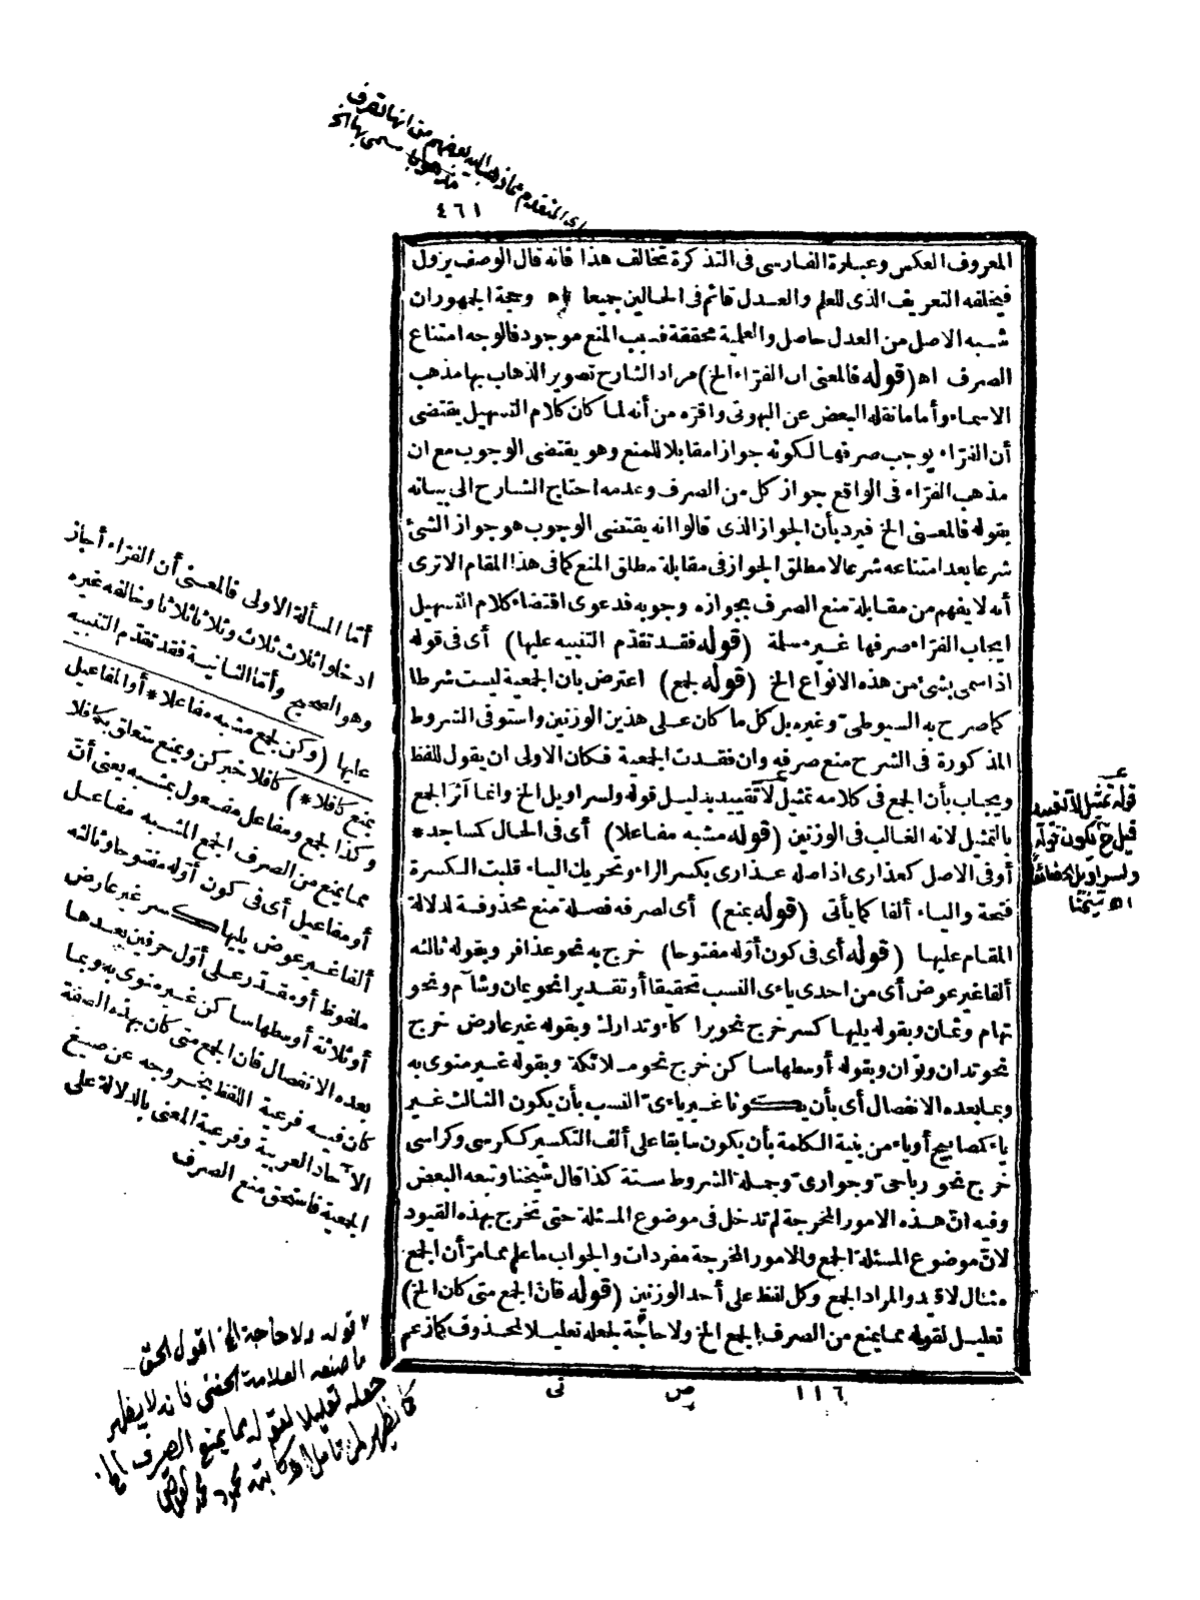 اى المتقدم مما ذهب اليه بعضهم من انها تصرف
مذهوبا مسمى بها الخ
٤٦١
المعروف العكس وعبارة الفارسى فى التذكرة تخالف هذا فانه قال الوصف يزول
فيخلفه التعريف الذى للعلم والعدل قائم فى الحالين جميعا اه وحجة الجمهور ان
شبه الاصل من العدل حاصل والعلمية محققة فسبب المنع موجود فالوجه امتناع
الصرف اه (قوله فالمعنى ان الفراء الخ) مراد الشارح تصوير الذهاب بها مذهب
الاسماء وأما ما نقله البعض عن البهوتى واقره من أنه لما كان كلام التسهيل يقتضى
أن الفراء يوجب صرفها لكونه جوازا مقابلا للمنع وهو يقتضى الوجوب مع ان
مذهب الفراء فى الواقع جواز كل من الصرف وعدمه احتاج الشارح الى بيانه
بقوله فالمعنى الخ فيرد بأن الجواز الذى قالوا انه يقتضى الوجوب هو جواز الشئ
شرعا بعد امتناعه شرعا لا مطلق الجواز فى مقابلة مطلق المنع كما فى هذا المقام الا ترى
أنه لا يفهم من مقابلة منع الصرف بجوازه وجوبه فدعوى اقتضاء كلام التسهيل
ايجاب الفراء صرفها غير مسلمة (قوله فقد تقدّم التنبيه عليها) أى فى قوله
اذا سمى بشئ من هذه الانواع الخ (قوله لجمع) اعترض بان الجمعية ليست شرطا
كما صرح به السيوطىّ وغيره بل كل ما كان على هذين الوزنين واستوفى الشروط
المذكورة فى الشرح منع صرفه وان فقدت الجمعية فكان الاولى ان يقول للفظ
ويجاب بأن الجمع فى كلامه تمثيل لا تقييد بدليل قوله ولسراويل الخ وانما آثر الجمع
بالتمثيل لانه الغالب فى الوزنين (قوله مشبه مفاعلا) أى فى الحال كمساجد *
أو فى الاصل كعذارى اذ اصله عذارى بكسر الراء وتحريك الياء قلبت الكسرة
فتحة والياء ألفا كما يأتى (قوله بمنع) أى لصرفه فصلة منع محذوفة لدلالة
المقام عليها (قوله أى فى كون أوّله مفتوحا) خرج به نحو عذافر وبقوله ثالثه
ألفا غير عوض أى من احدى ياءى النسب تحقيقا أو تقديرا نحو يمان وشآم ونحو
تهام وثمان وبقوله يليها كسر خرج نحو براكاء وتدارك وبقوله غير عارض خرج
نحو تدان وتوان وبقوله أوسطها ساكن خرج نحو ملائكة وبقوله غير منوى به
وبما بعده الانفصال أى بأن يكونا غير ياءىّ النسب بأن يكون الثالث غير
ياء كمصابيح أو ياء من بنية الكلمة بأن يكون سابقا على ألف التكسير ككرسى وكراسى
خرج نحو رباحىّ وجوارىّ وجملة الشروط ستة كذا قال شيخنا وتبعه البعض
وفيه انّ هذه الامور المخرجة لم تدخل فى موضوع المسئلة حتى تخرج بهذه القيود
لانّ موضوع المسئلة الجمع والامور المخرجة مفردات والجواب ما علم مما مرّ أن الجمع
مثال لا قيد والمراد الجمع وكل لفظ على أحد الوزنين (قوله فانّ الجمع متى كان الخ)
تعليل لقوله مما يمنع من الصرف الجمع الخ ولا حاجة لجعله تعليلا لمحذوف كما زعم
١١٦ ص فى
أمّا المسألة الاولى فالمعنى أن الفراء أجاز
ادخلوا ثلاث ثلاث وثلاثا ثلاثا وخالفه غيره
وهو الصحيح وأمّا الثانية فقد تقدّم التنبيه
عليها (وكن لجمع مشبه مفاعلا * أو المفاعيل
بمنع كافلا *) كافلا خبر كن وبمنع متعلق بكافلا
وكذا لجمع ومفاعل مفعول بمشبه يعنى أنّ
مما يمنع من الصرف الجمع المشبه مفاعل
أو مفاعيل أى فى كون أوّله مفتوحا وثالثه
ألفا غير عوض يليها كسر غير عارض
ملفوظ أو مقدّر على أوّل حرفين بعدها
أو ثلاثة أوسطها ساكن غير منوى به وبما
بعده الانفصال فان الجمع متى كان بهذه الصفة
كان فيه فرعية اللفظ بخروجه عن صيغ
الآحاد العربية وفرعية المعنى بالدلالة على
الجمعية فاستحق منع الصرف
قوله تمثيل لا تقييد
قيل ح يكون قوله
ولسراويل الخ ضائعا
اه شيخنا
٧ قوله ولا حاجة الخ اقول الحق
ما صنعه العلامة الحفنى فانه لا يظهر
جعله تعليلا لقوله مما يمنع الصرف الخ
كما يظهر لمن تأمل اه كاتبه محمود محمد